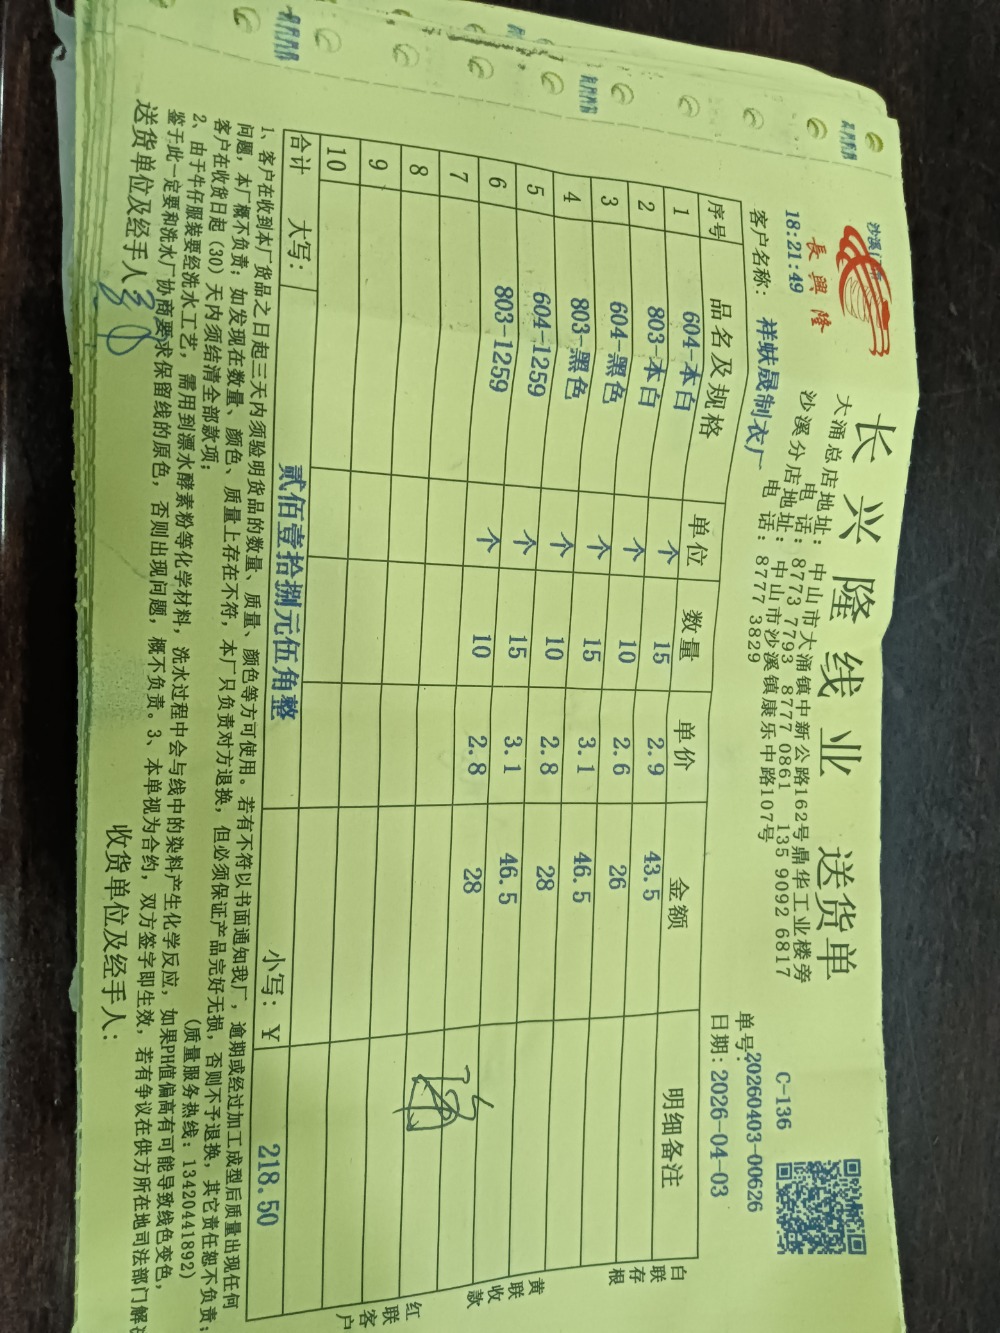 长兴隆线业 送货单
長興隆
大涌总店地址：中山市大涌镇中新公路162号鼎华工业楼旁
电话：8773 7793 8777 0861 135 9092 6817
沙溪分店地址：中山市沙溪镇康乐中路107号
电话：8777 3829
C-136
18:21:49
单号：20260403-00626
客户名称：祥蚨晟制衣厂
日期：2026-04-03
序号 品名及规格 单位 数量 单价 金额 明细备注
1 604-本白 个 15 2.9 43.5
2 803-本白 个 10 2.6 26
3 604-黑色 个 15 3.1 46.5
4 803-黑色 个 10 2.8 28
5 604-1259 个 15 3.1 46.5
6 803-1259 个 10 2.8 28
7
8
9
10
合计 大写：贰佰壹拾捌元伍角整 小写：¥ 218.50
白联存根
黄联收款
红联客户
1、客户在收到本厂货品之日起三天内须验明货品的数量、质量、颜色等方可使用。若有不符以书面通知我厂，逾期或经过加工成型后质量出现任何
问题，本厂概不负责；如发现在数量、颜色、质量上存在不符，本厂只负责对方退换，但必须保证产品完好无损，否则不予退换，其它责任恕不负责；
客户在收货日起（30）天内须结清全部款项；（质量服务热线：13420441892）
2、由于牛仔服装要经洗水工艺，需用到漂水酵素粉等化学材料，洗水过程中会与线中的染料产生化学反应，如果PH值偏高有可能导致线色变色，
鉴于此一定要和洗水厂协商要求保留线的原色，否则出现问题，概不负责。3、本单视为合约，双方签字即生效，若有争议在供方所在地司法部门解
送货单位及经手人 收货单位及经手人：